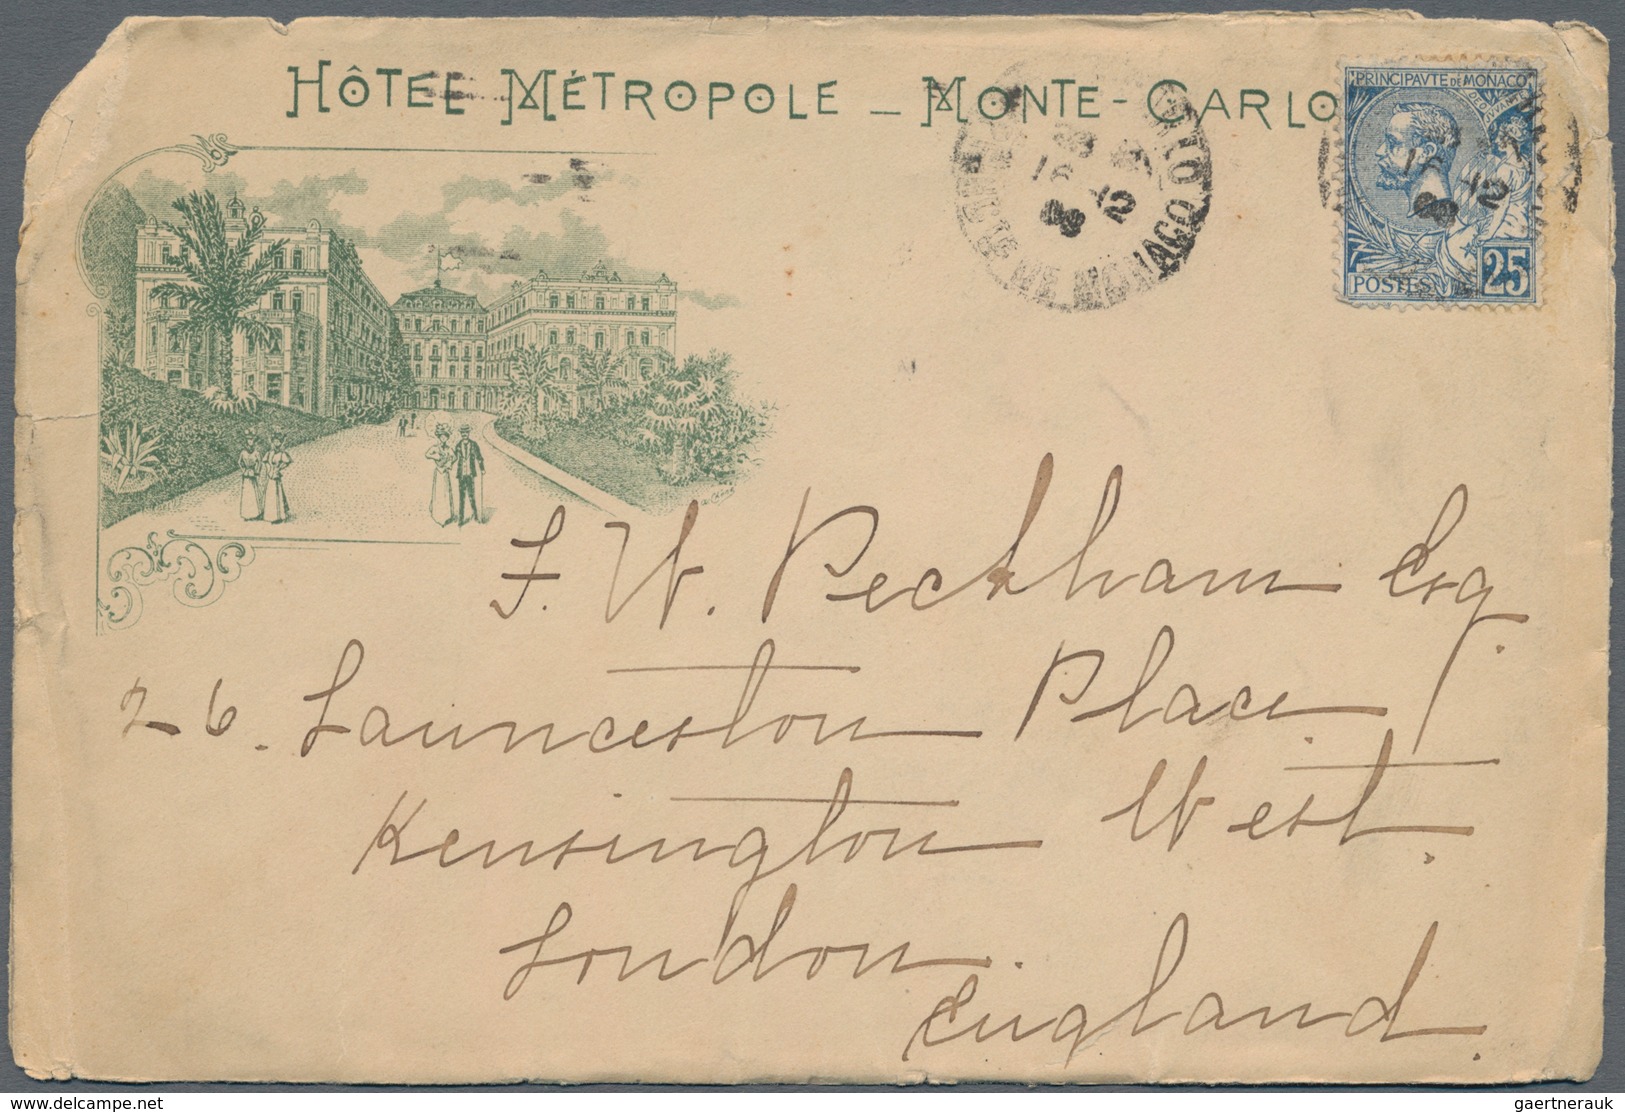 HÔTEL MÉTROPOLE _ MONTE-CARLO
PRINCIPAVTE DE MONACO
POSTES 25
MONACO
F. W. Peckham Esq.
26. Launceston Place /
Kensington West.
London.
England.
gaertnerauk